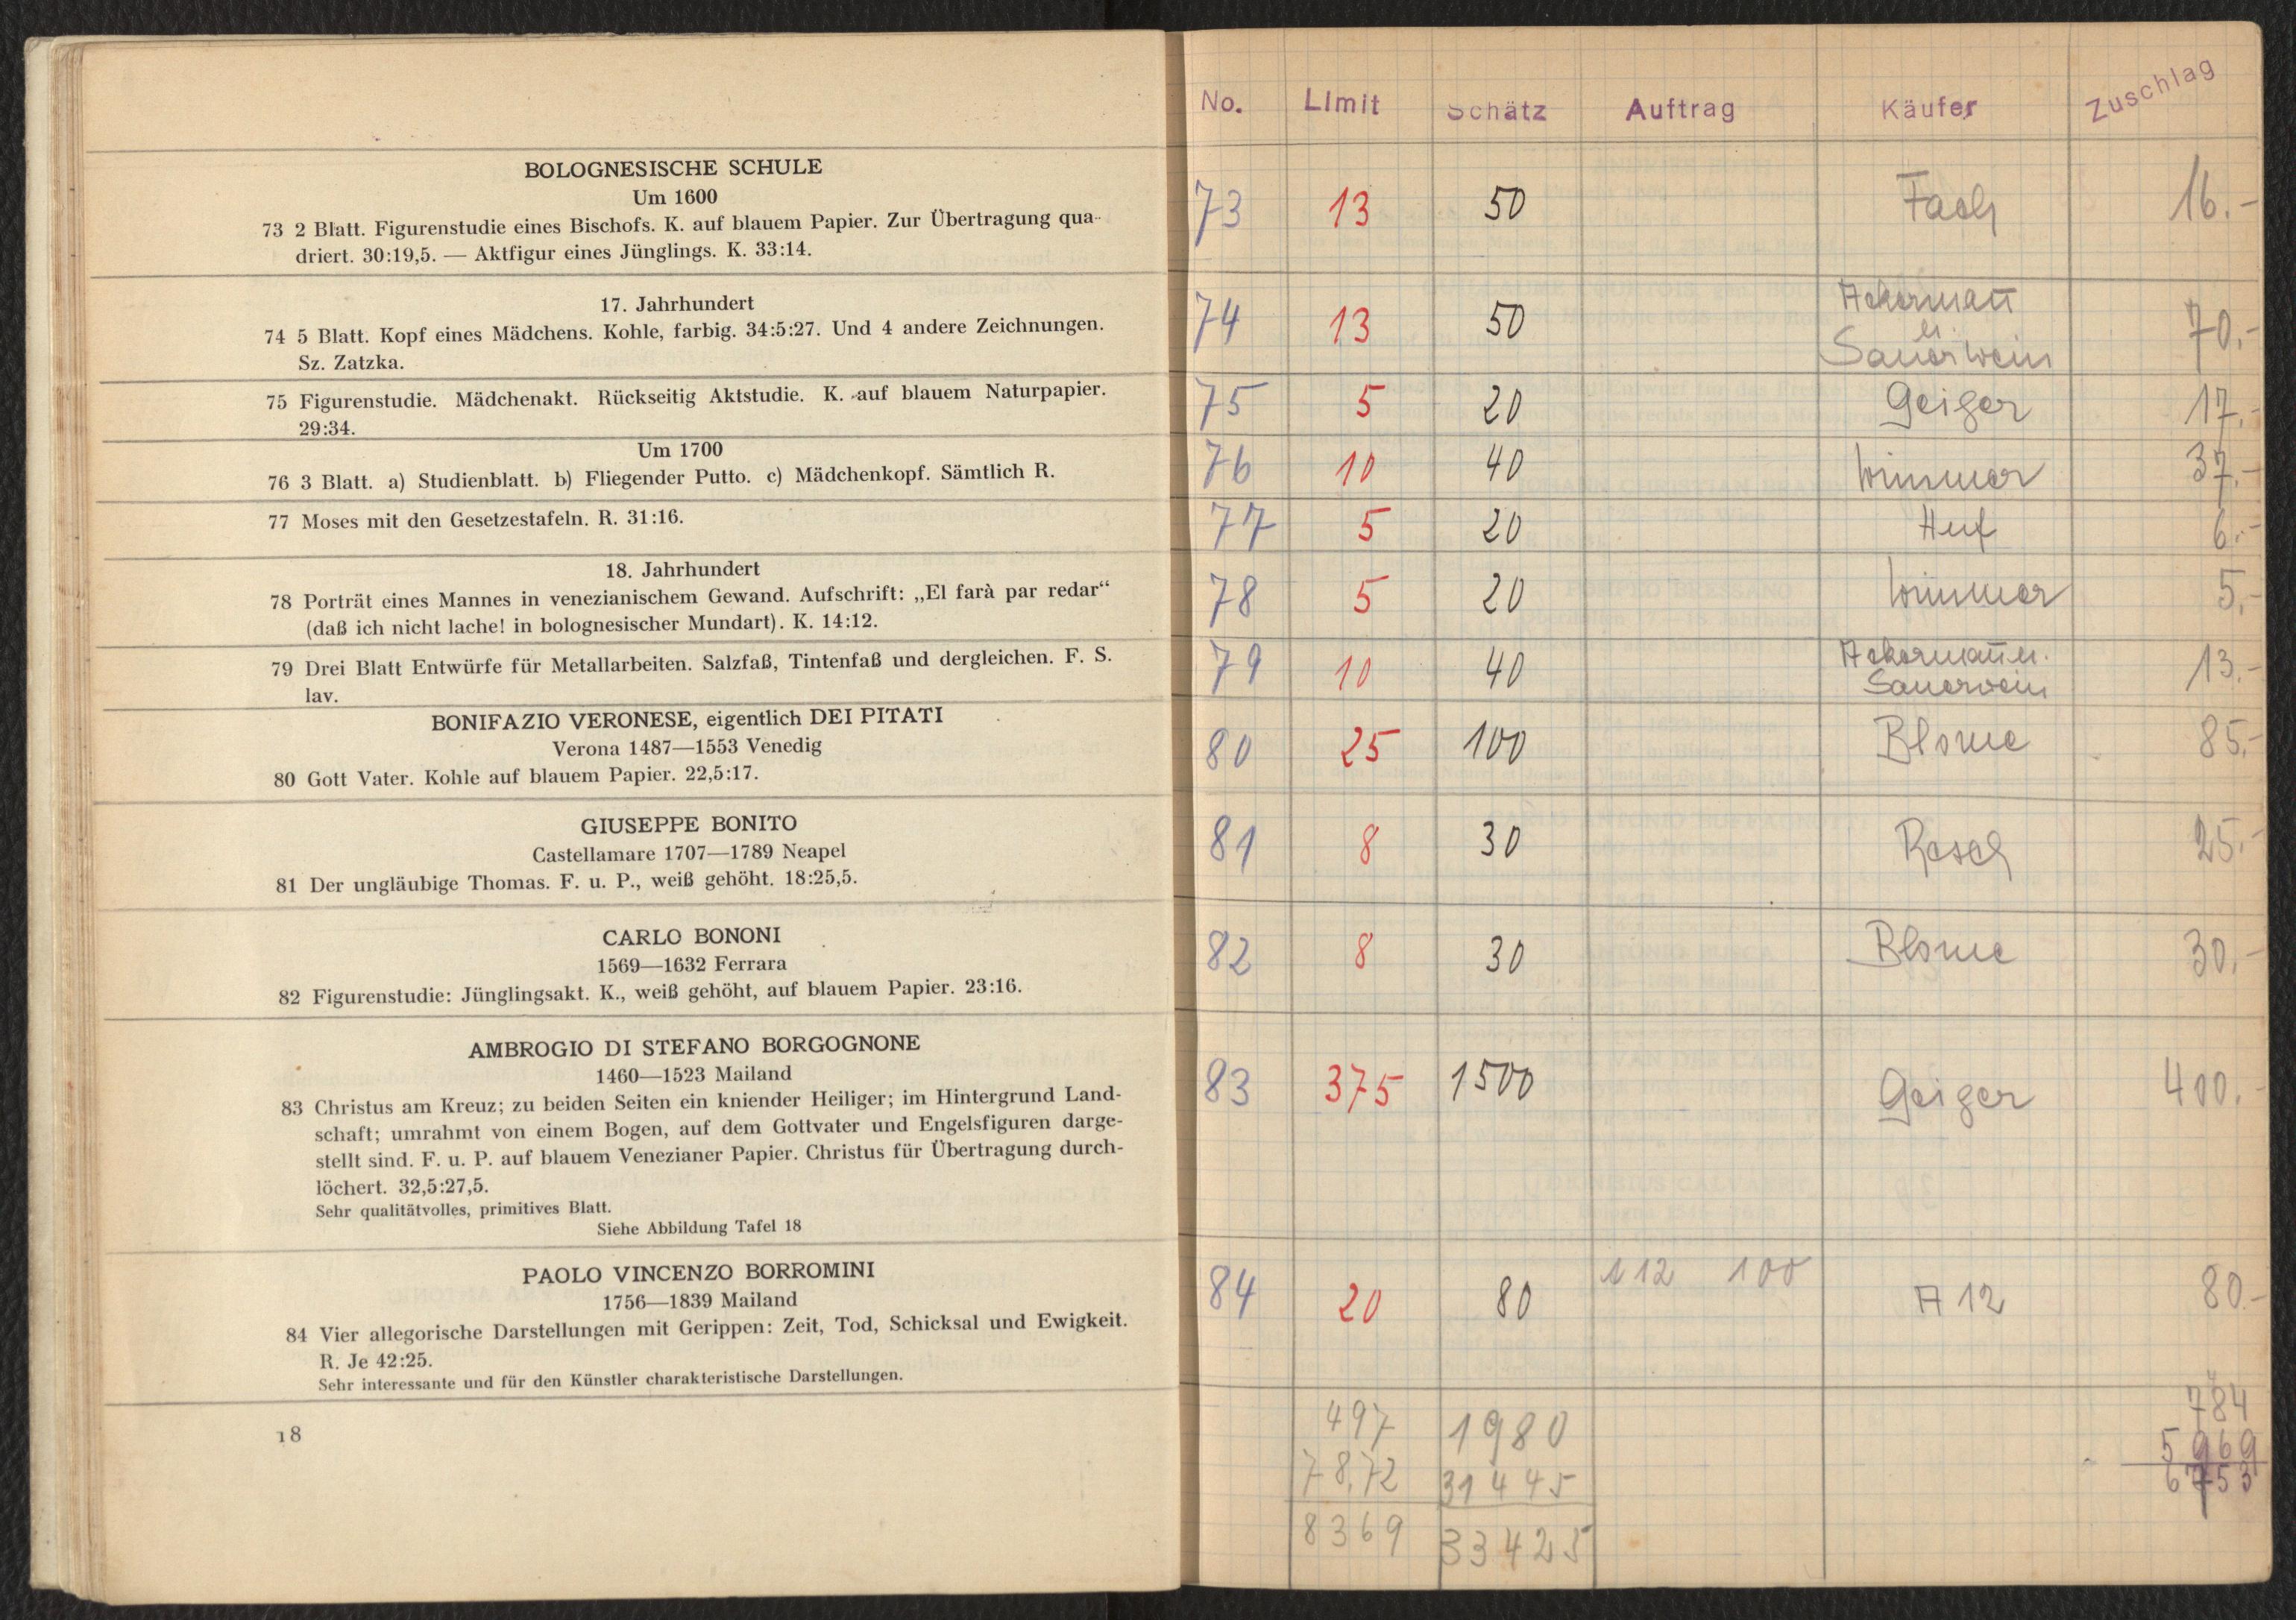 BOLOGNESISCHE SCHULE
Um 1600
73 2 Blatt. Figurenstudie eines Bischofs. K. auf blauem Papier. Zur Übertragung qua-
driert. 30:19,5. — Aktfigur eines Jünglings. K. 33:14.
17. Jahrhundert
74 5 Blatt. Kopf eines Mädchens. Kohle, farbig. 34:5:27. Und 4 andere Zeichnungen.
Sz. Zatzka.
75 Figurenstudie. Mädchenakt. Rückseitig Aktstudie. K. auf blauem Naturpapier.
29:34.
Um 1700
76 3 Blatt. a) Studienblatt. b) Fliegender Putto. c) Mädchenkopf. Sämtlich R.
77 Moses mit den Gesetzestafeln. R. 31:16.
18. Jahrhundert
78 Porträt eines Mannes in venezianischem Gewand. Aufschrift: „El farà par redar“
(daß ich nicht lache! in bolognesischer Mundart). K. 14:12.
79 Drei Blatt Entwürfe für Metallarbeiten. Salzfaß, Tintenfaß und dergleichen. F. S.
lav.
BONIFAZIO VERONESE, eigentlich DEI PITATI
Verona 1487—1553 Venedig
80 Gott Vater. Kohle auf blauem Papier. 22,5:17.
GIUSEPPE BONITO
Castellamare 1707—1789 Neapel
81 Der ungläubige Thomas. F. u. P., weiß gehöht. 18:25,5.
CARLO BONONI
1569—1632 Ferrara
82 Figurenstudie: Jünglingsakt. K., weiß gehöht, auf blauem Papier. 23:16.
AMBROGIO DI STEFANO BORGOGNONE
1460—1523 Mailand
83 Christus am Kreuz; zu beiden Seiten ein kniender Heiliger; im Hintergrund Land-
schaft; umrahmt von einem Bogen, auf dem Gottvater und Engelsfiguren darge-
stellt sind. F. u. P. auf blauem Venezianer Papier. Christus für Übertragung durch-
löchert. 32,5:27,5.
Sehr qualitätvolles, primitives Blatt.
Siehe Abbildung Tafel 18
PAOLO VINCENZO BORROMINI
1756—1839 Mailand
84 Vier allegorische Darstellungen mit Gerippen: Zeit, Tod, Schicksal und Ewigkeit.
R. Je 42:25.
Sehr interessante und für den Künstler charakteristische Darstellungen.
18
No. Limit Schätz Auftrag Käufer Zuschlag
73 13 50 Fach 16.-
74 13 50 Ackermann u. Sauerwein 70.-
75 5 20 Geiger 17.-
76 10 40 Wimmer 37.-
77 5 20 Huf 6.-
78 5 20 Wimmer 5.-
79 10 40 Ackermann u. Sauerwein 13.-
80 25 100 Blome 85.-
81 8 30 Rosch 25.-
82 8 30 Blome 30.-
83 375 1500 Geiger 400.-
84 20 80 112 100 A 12 80.-
497 1980 784
78,72 31445 5969
8369 33425 6753